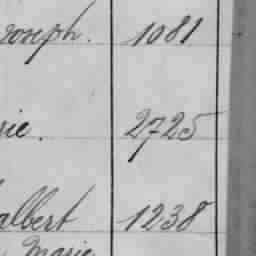 Joseph. 1081
rie. 2725
albert 1238
Marie